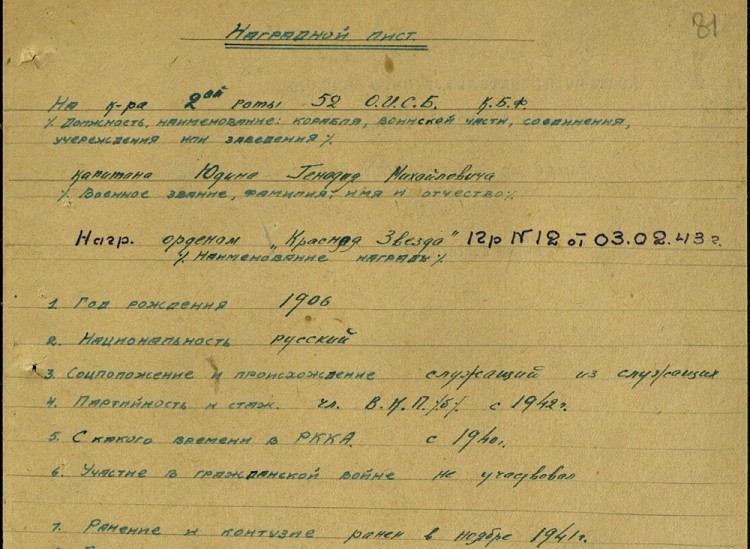 81
Наградной лист.
На к-ра 2ой роты 52 О.И.С.Б. К.Б.Ф.
% Должность, наименование: корабля, воинской части, соединения,
учереждения или заведения %.
капитана Юдина Генадия Михайловича
% Военное звание, фамилия, имя и отчество %
Нагр. орденом „Красная Звезда" Пр N12 от 03.02.43г.
% Наименование награды %
1. Год рождения 1906
2. Национальность русский
3. Соцположение и происхождение служащий из служащих
4. Партийность и стаж. чл. В.К.П./б/. с 1942г.
5. С какого времени в РККА. с 1940г.
6. Участие в гражданской войне не участвовал
7. Ранение и контузие ранен в ноябре 1941г.